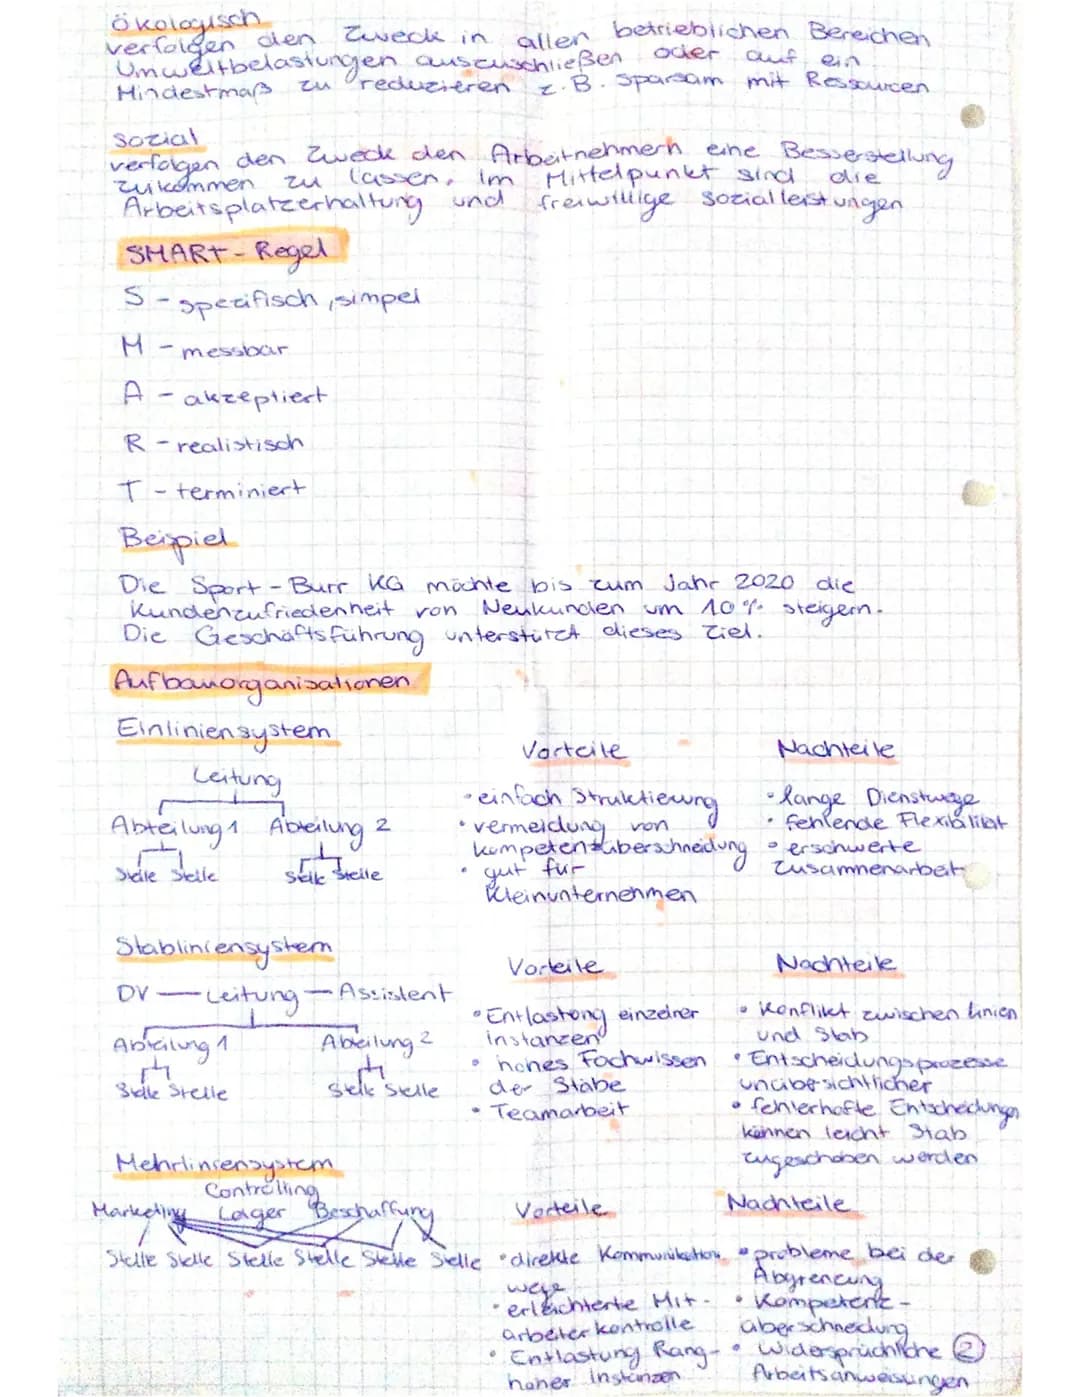 ökologisch
verfolgen den Zweck in allen betrieblichen Bereichen
Umweltbelastungen auszuschließen oder auf ein
Mindestmaß zu reduzieren z.B. sparsam mit Ressourcen
sozial
verfolgen den Zweck den Arbeitnehmern eine Besserstellung
zukommen zu lassen. Im Mittelpunkt sind die
Arbeitsplatzerhaltung und freiwillige Sozialleistungen
SMART-Regel
S - spezifisch, simpel
M - messbar
A - akzeptiert
R - realistisch
T - terminiert
Beispiel
Die Sport-Burr KG möchte bis zum Jahr 2020 die
Kundenzufriedenheit von Neukunden um 10% steigern.
Die Geschäftsführung unterstützt dieses Ziel.
Aufbauorganisationen
Einliniensystem
Leitung
Abteilung 1 Abteilung 2
Stelle Stelle Stelle Stelle
Vorteile
• einfach Struktierung
• vermeidung von
kompetenzüberschneidung
• gut für
Kleinunternehmen
Nachteile
• lange Dienstwege
• fehlende Flexibilität
• erschwerte
Zusammenarbeit
Stabliniensystem
DV — Leitung — Assistent
Abteilung 1 Abteilung 2
Stelle Stelle Stelle Stelle
Vorteile
• Entlastung einzelner
instanzen
• hohes Fachwissen
der Stäbe
• Teamarbeit
Nachteile
• Konflikt zwischen Linien
und Stab
• Entscheidungsprozesse
unübersichtlicher
• fehlerhafte Entscheidungen
können leicht Stab
zugeschoben werden
Mehrliniensystem
Controlling
Marketing Lager Beschaffung
Stelle Stelle Stelle Stelle Stelle Stelle
Vorteile
• direkte Kommunikation
wege
• erleichterte Mit-
arbeiterkontrolle
• Entlastung Rang-
hoher Instanzen
Nachteile
• probleme bei der
Abgrenzung
• Kompetenz-
überschneidung
• widersprüchliche
Arbeitsanweisungen
2